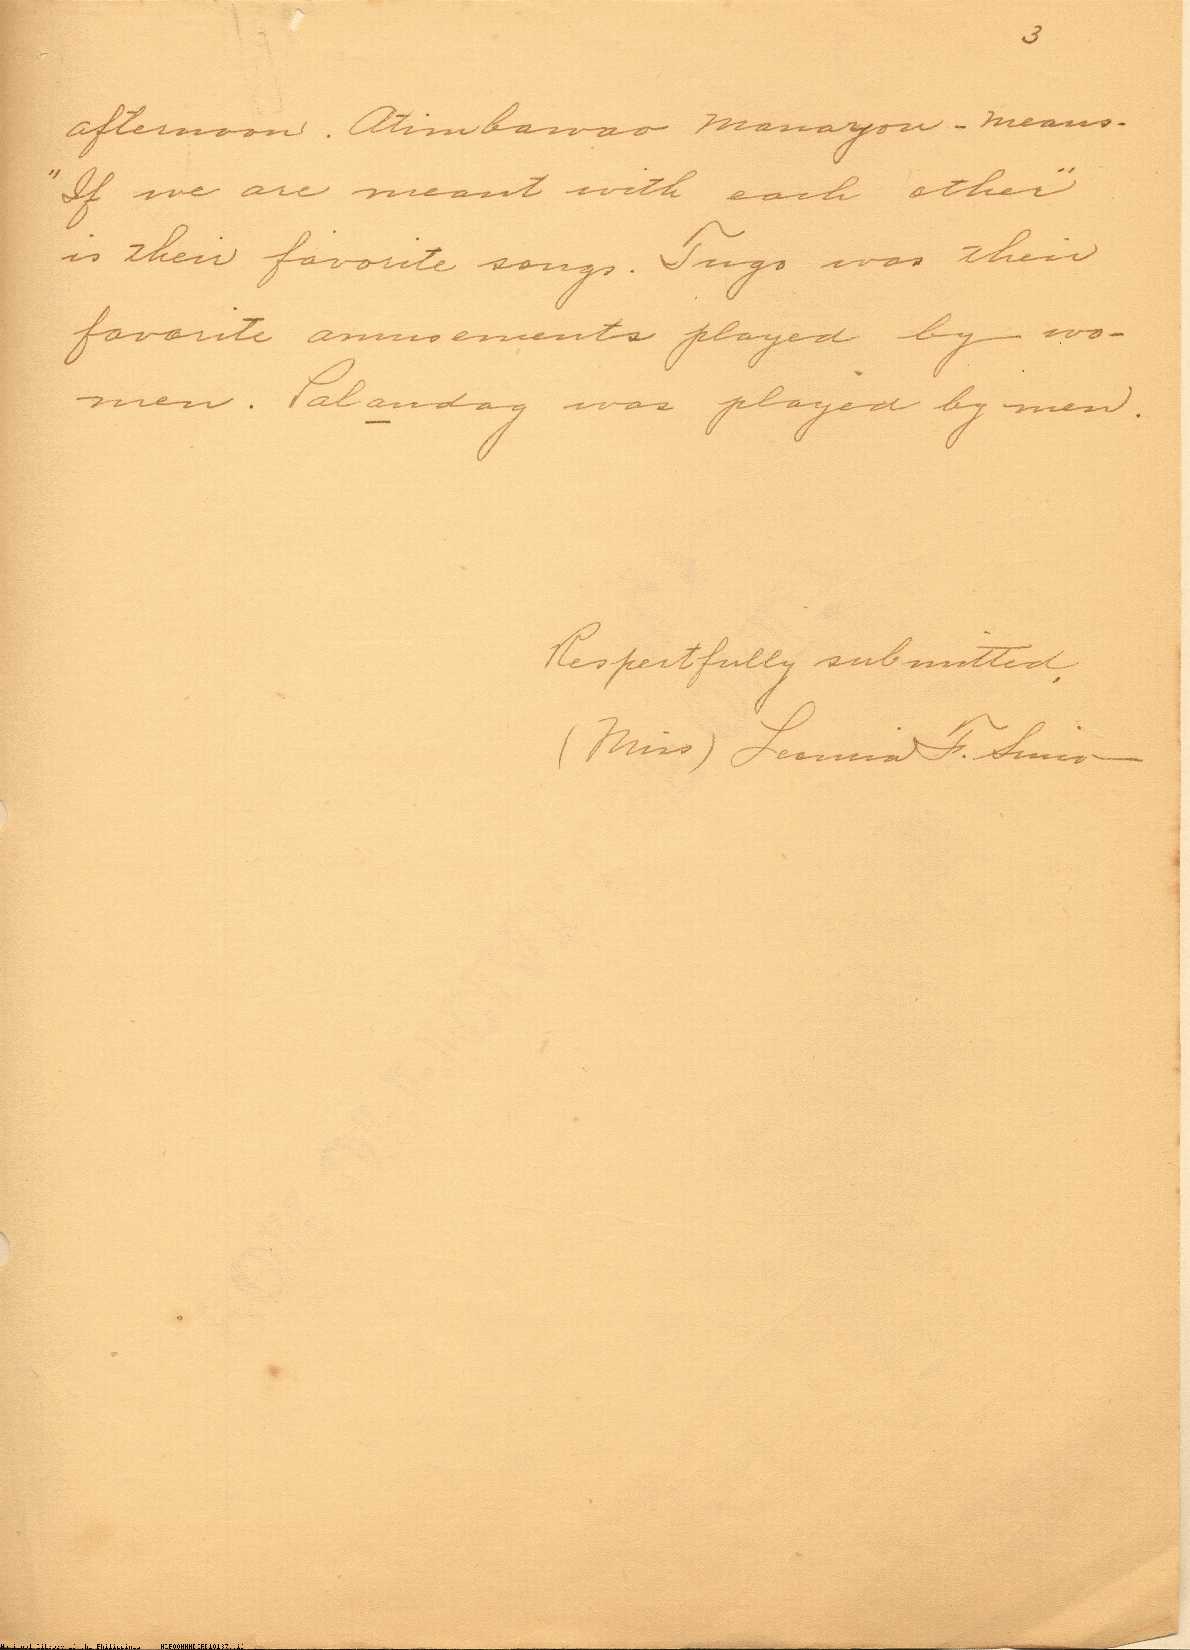 3
afternoon. Atimbawao Manayon - means-
"If we are meant with each other"
is their favorite songs. Tugo was their
favorite amusements played by wo-
men. Palandag was played by men.
Respectfully submitted,
(Miss) F.